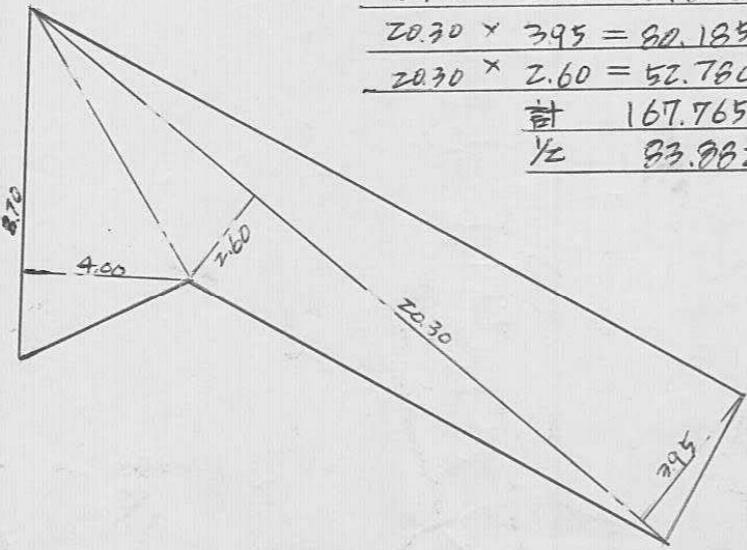 20.30 × 3.95 = 80.185
20.30 × 2.60 = 52.780
計 167.765
1/2 83.88
8.70
4.00
2.60
20.30
3.95